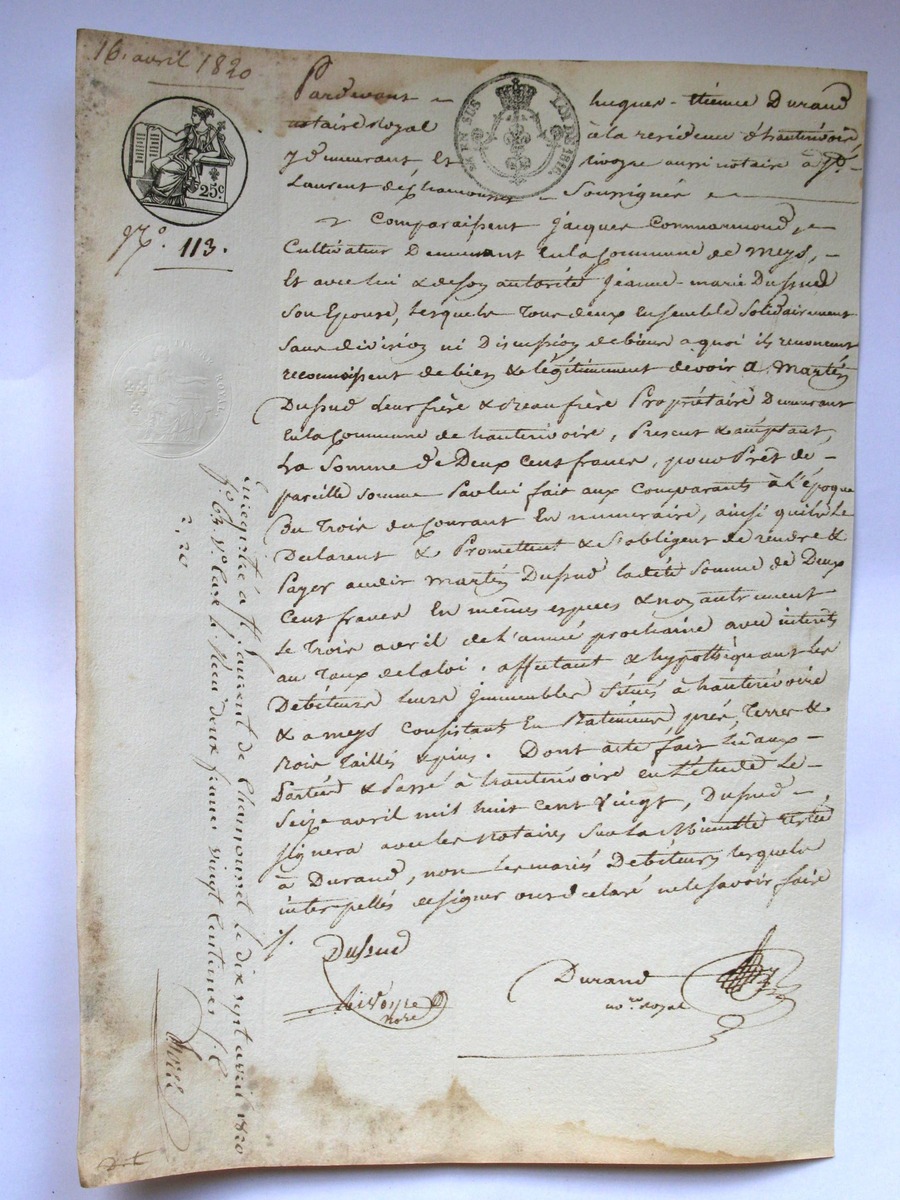 16. avril 1820
Pardevant hugues - étienne Durand
notaire Royal à la residence d'hauterivoire
y demeurant Et aussi notaire à St.
Laurent de Chamousset Soussignés
EN SUS
LOI DE 1816
25c
No. 113.
Comparaissent jacques Commarmond,
Cultivateur Demeurant En la Commune de meys,
Et avec lui & de son autorité jeanne-marie Dussud
Son Epouse, lesquels Tous deux Ensemble Solidairement
Sans division ni Discussion de biens a quoi ils renoncent
reconnoissent de bien & légitimement devoir a Martin
Dussud leur frère & Beau frère Propriétaire Demeurant
En la Commune de hauterivoire, Present & acceptant,
La Somme de Deux Cent francs, pour Prêt de
pareille somme Par lui fait aux Comparants à L'époque
Du Trois du Courant En numeraire, ainsi qu'ils Le
Declarent & Promettent & S'obligent de rendre &
Payer audit Martin Dussud ladite Somme de Deux
Cent francs En mêmes especes & non autrement
Le Trois avril de L'année prochaine avec interêts
au Taux de la loi. affectant & hypothéquant les
Débiteurs leurs immeubles Situés à hauterivoire
& a meys Consistant En Batiments, prés, Terres &
Bois Taillés & pins. Dont acte fait lu aux
Parties & Passé à hauterivoire en L'étude Le
Seize avril mil huit cent Vingt, Dussud
Signera avec les Notaires Sur la Minutte restée
à Durand, non les mariés Débiteurs lesquels
interpellés de signer ont declaré ne le savoir faire
Dussud
Durand
nore royal
nore
ROYAL
Enregistré à St Laurent de Chamousset le dix sept avril 1820
fo 63 vo Case 6 Reçu deux francs vingt Centimes
2,20